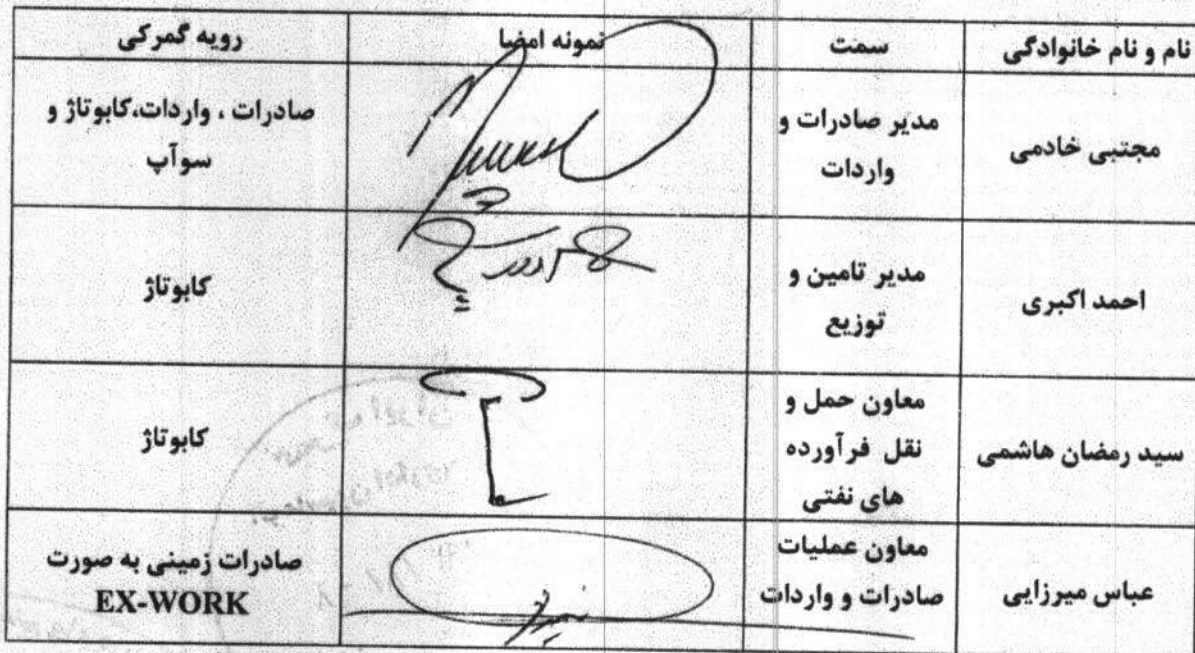 نام و نام خانوادگی سمت نمونه امضا رویه گمرکی
مجتبی خادمی مدیر صادرات و واردات صادرات ، واردات،کابوتاژ و سوآپ
احمد اکبری مدیر تامین و توزیع کابوتاژ
سید رمضان هاشمی معاون حمل و نقل فرآورده های نفتی کابوتاژ
عباس میرزایی معاون عملیات صادرات و واردات صادرات زمینی به صورت EX-WORK